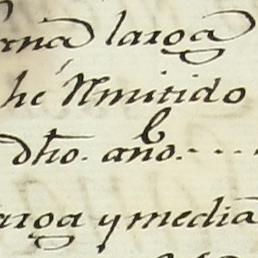 larga
hé Rmitido
dho. año....
arga y media